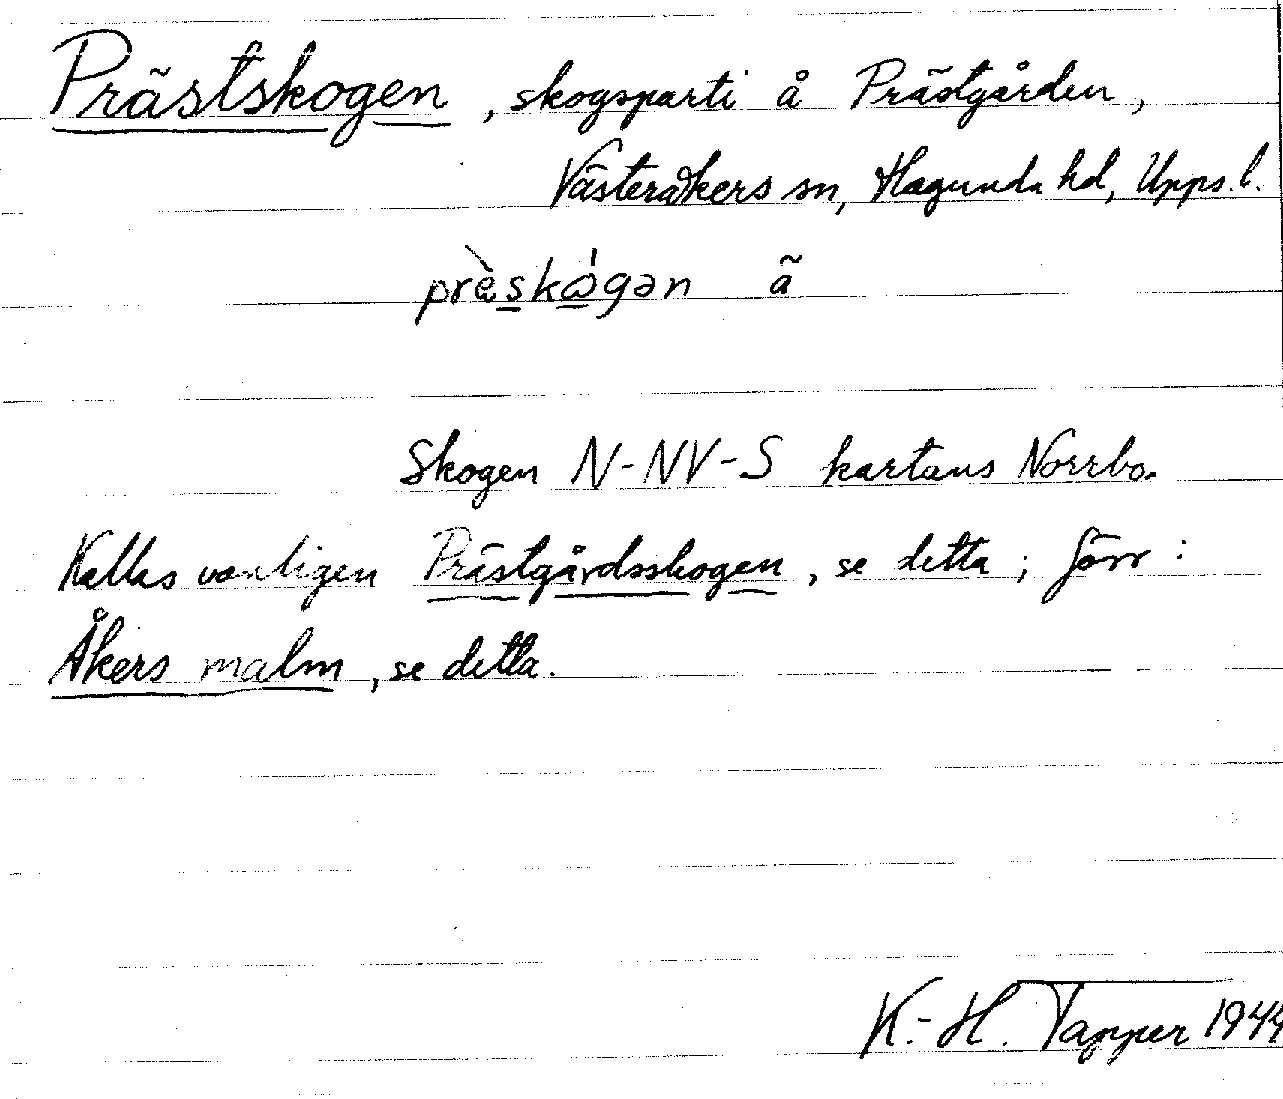 Prästskogen, skogsparti å Prästgården,
Västeråkers sn, Hagunda hd, Upps. l.
prèskógən ã
Skogen N-NV-S kartans Norrbo.
Kallas vanligen Prästgårdsskogen, se detta; förr:
Åkers malm, se detta.
K.-H. Tapper 1944